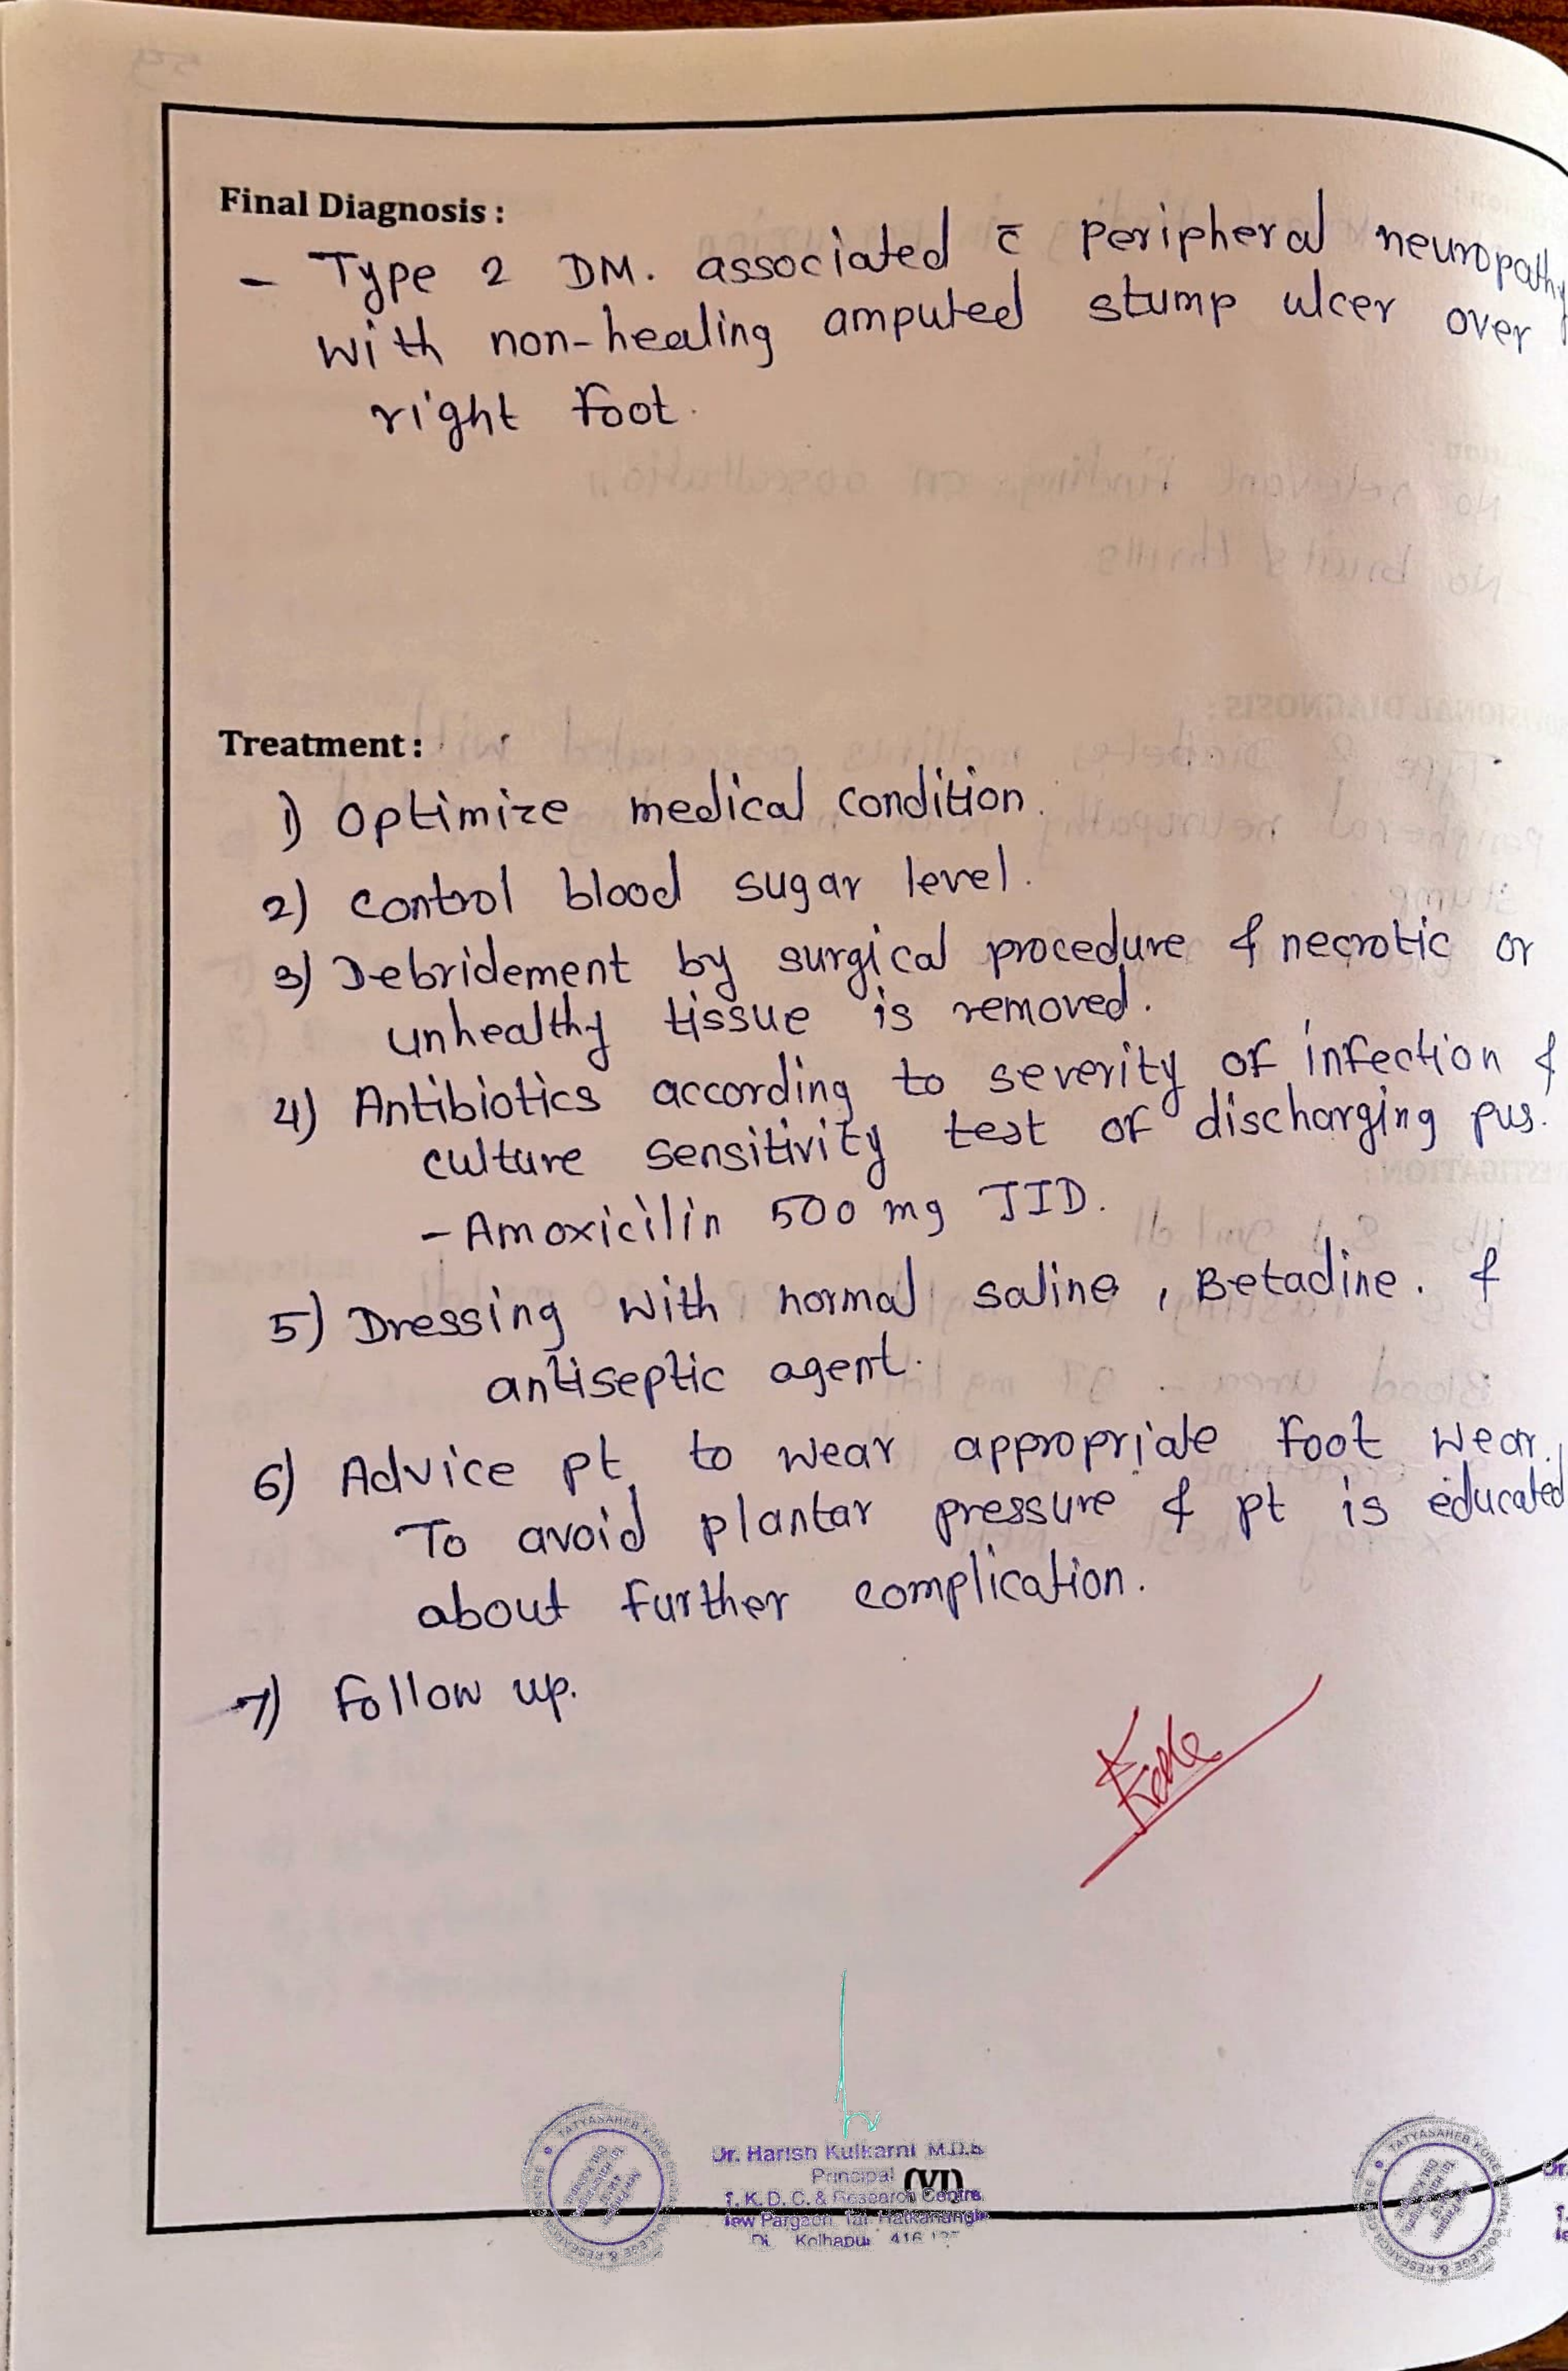 Final Diagnosis :
- Type 2 DM. associated c̄ peripheral neuropathy
with non-healing amputed stump ulcer over
right foot.
Treatment :
1) Optimize medical condition.
2) control blood sugar level.
3) Debridement by surgical procedure & necrotic or
unhealthy tissue is removed.
4) Antibiotics according to severity of infection &
culture sensitivity test of discharging pus.
- Amoxicilin 500 mg TID.
5) Dressing with normal saline, Betadine. &
antiseptic agent.
6) Advice pt to wear appropriate foot wear.
To avoid plantar pressure & pt is educated
about further complication.
7) Follow up.
Dr. Harish Kulkarni M.D.S
Principal
(VI)
T. K. D. C. & Research Centre
New Pargaon Tal. Hatkanangle
Di. Kolhapur 416
TATYASAHEB KORE
COLLEGE & RESEARCH CENTRE
TATYASAHEB KORE
COLLEGE & RESEARCH